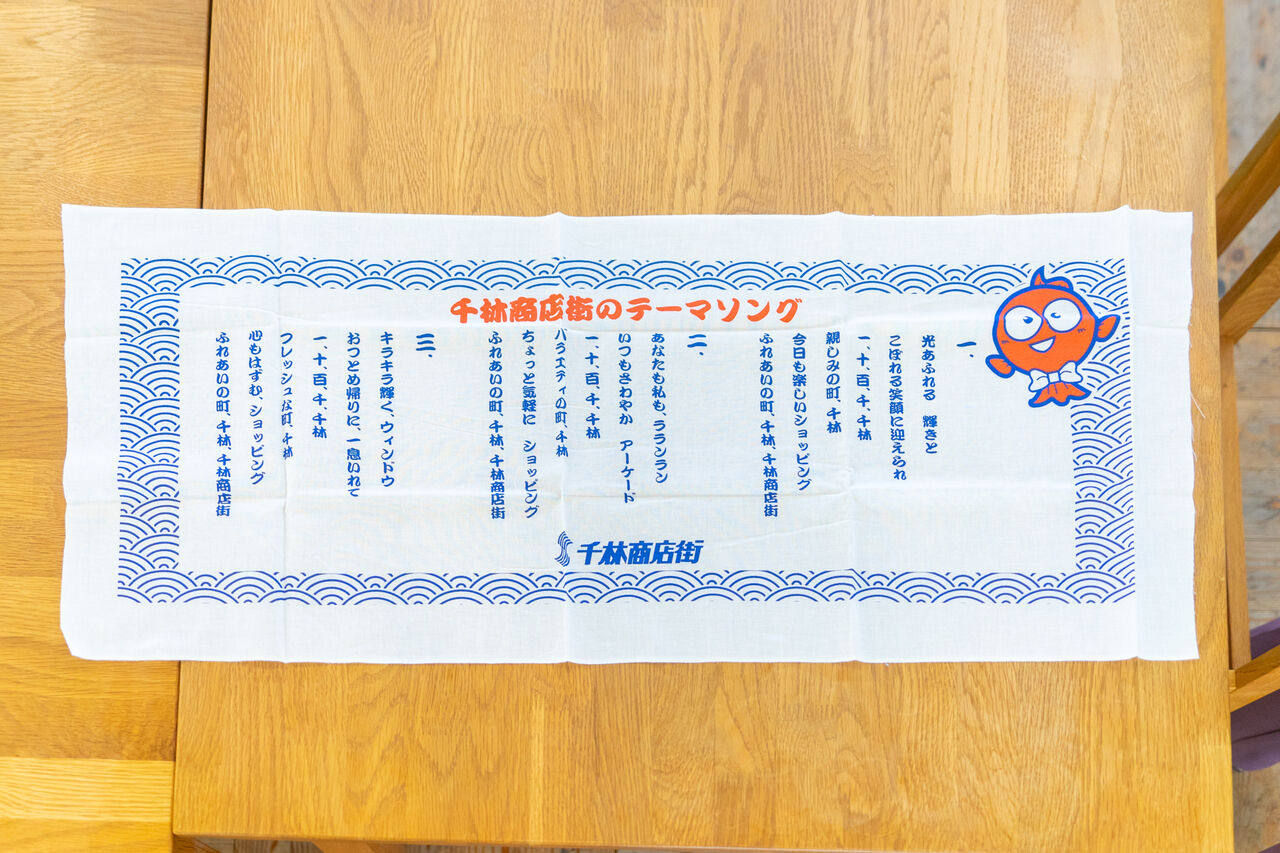 千林商店街のテーマソング
一、
光あふれる 輝きと
こぼれる笑顔に迎えられ
一、十、百、千、千林
親しみの町、千林
今日も楽しいショッピング
ふれあいの町、千林、千林商店街
二、
あなたも私も、ラランラン
いつもさわやか アーケード
一、十、百、千、千林
バラエティの町、千林
ちょっと気軽に ショッピング
ふれあいの町、千林、千林商店街
三、
キラキラ輝く、ウィンドウ
おつとめ帰りに、一息いれて
一、十、百、千、千林
フレッシュな町、千林
心もはずむ、ショッピング
ふれあいの町、千林、千林商店街
千林商店街